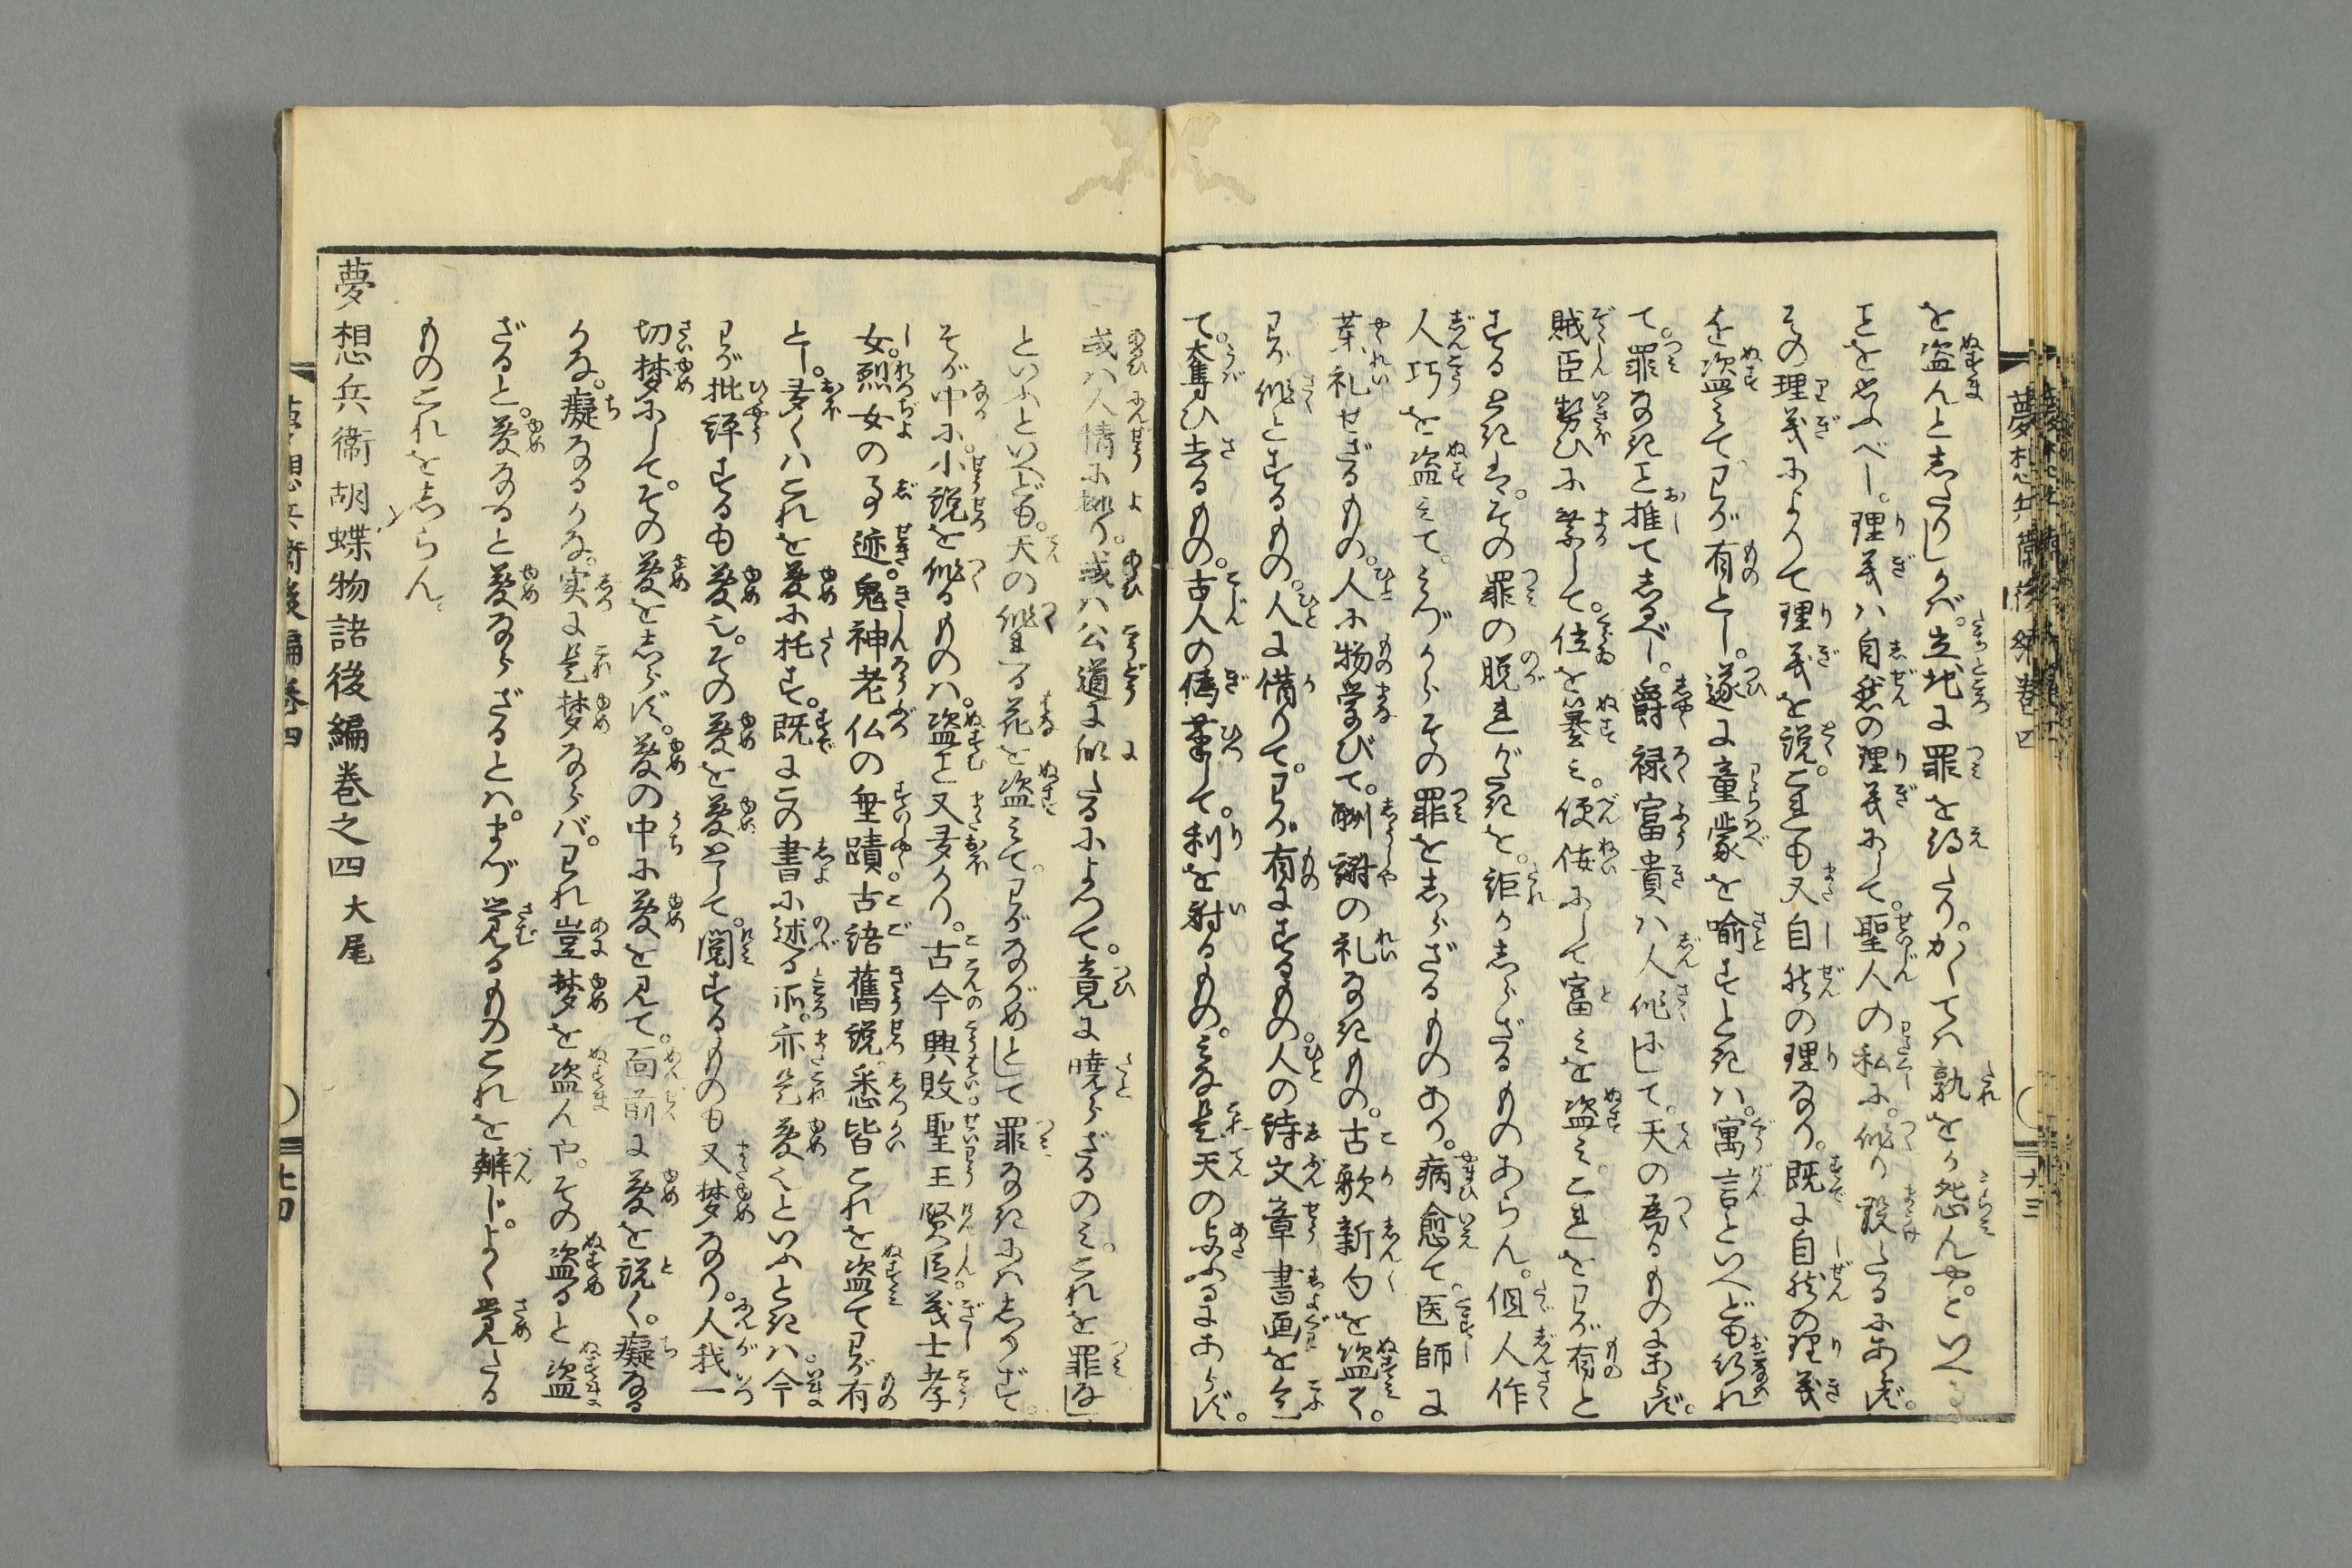 を盗んと志たりしかば。立地に罪を得たり。かくてハ孰をか怨んや。といへ
ことを思ふべし。理義ハ自然の理義にして。聖人の私に。作り設たるにあらず。
その理義によりて理義を説。これも又自然の理なり。既に自然の理義
を盗みてわが有とし。遂に童蒙を喩すときハ。寓言といへども約れ
て。罪なきを推て志るべし。爵禄富貴ハ人作にして。天の為るものにあらず。
賊臣勢ひに業して。位を纂み。便佞にして富ミを盗ミ。これをわが有と
するときは。その罪の脱れがたきを。誰か志らざるものあらん。但人作
人巧を盗ミて。ミづからその罪を志らざるものあり。病愈て。医師に
薬礼せざるもの。人に物学びて。酬謝の礼なきもの。古歌新句を盗て。
わが作とするもの。人に借りて。わが有にするもの。人の詩文章書画を乞
て。奪ひ去るもの。古人の偽筆して。利を射るもの。ミな是天の与ふるにあらず。
或ハ人情に拠り。或ハ公道に似たるによつて。竟に暁らざるのミ。これを罪なし
といふといへども。天の作れる花を盗ミて。わがながめとして罪なきにハ志かず。
そが中に。小説を作るものハ。盗こと又多かり。古今興敗聖王賢臣。義士孝
女。烈女の事迹。鬼神老仏の垂蹟。古語舊説。悉皆これを盗てわが有
とし。多くハこれを夢に托す。既にこの書に述る所。亦是夢也といふときハ。今
わが批評するも夢也。その夢を夢として。閲するものも又梦なり。人我一
切梦にして。その夢を志らず。夢の中に夢を見て。面前に夢を説く。癡なる
かな。癡なるかな。実に是梦ならバ。われ豈梦を盗んや。その盗ると盗
ざると。夢なると夢ならざるとハ。まづ覚るものこれを辨じ。よく覚たる
ものこれを志らん。
夢想兵衞胡蝶物語後編巻之四大尾
夢想兵衞後編巻四
十三
夢想兵衞後編巻四
十四